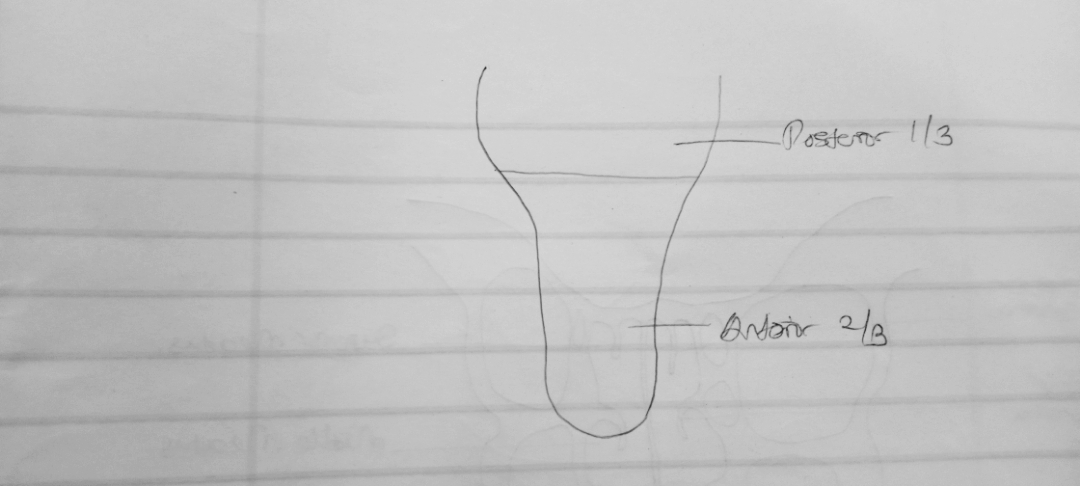 Posterior 1/3
Anterior 2/3